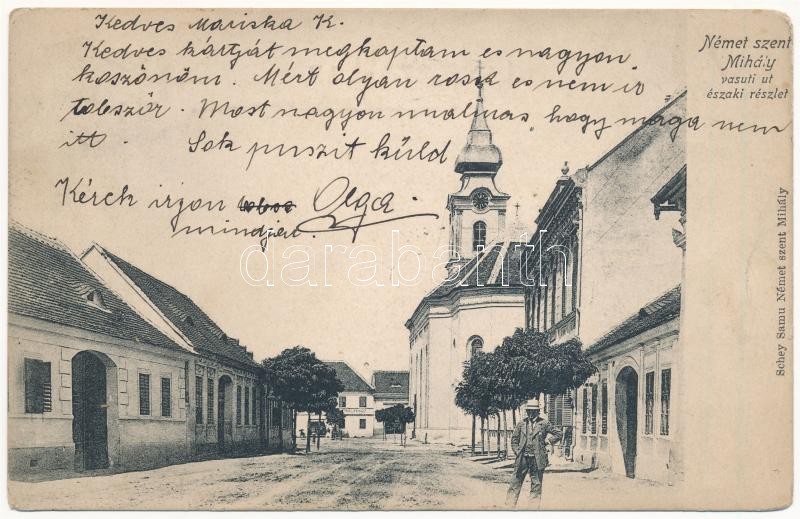 Kedves Mariska K.
Kedves kártyát megkaptam es nagyon
koszönöm. Mért olyan rosz es nem ir
tobször. Most nagyon unalmas hogy maga nem
itt.
Sok puszit küld
Kérek irjon
mindjárt.
Olga
Német szent
Mihály
vasuti ut
északi részlet
darabanth
Schey Samu Német szent Mihály